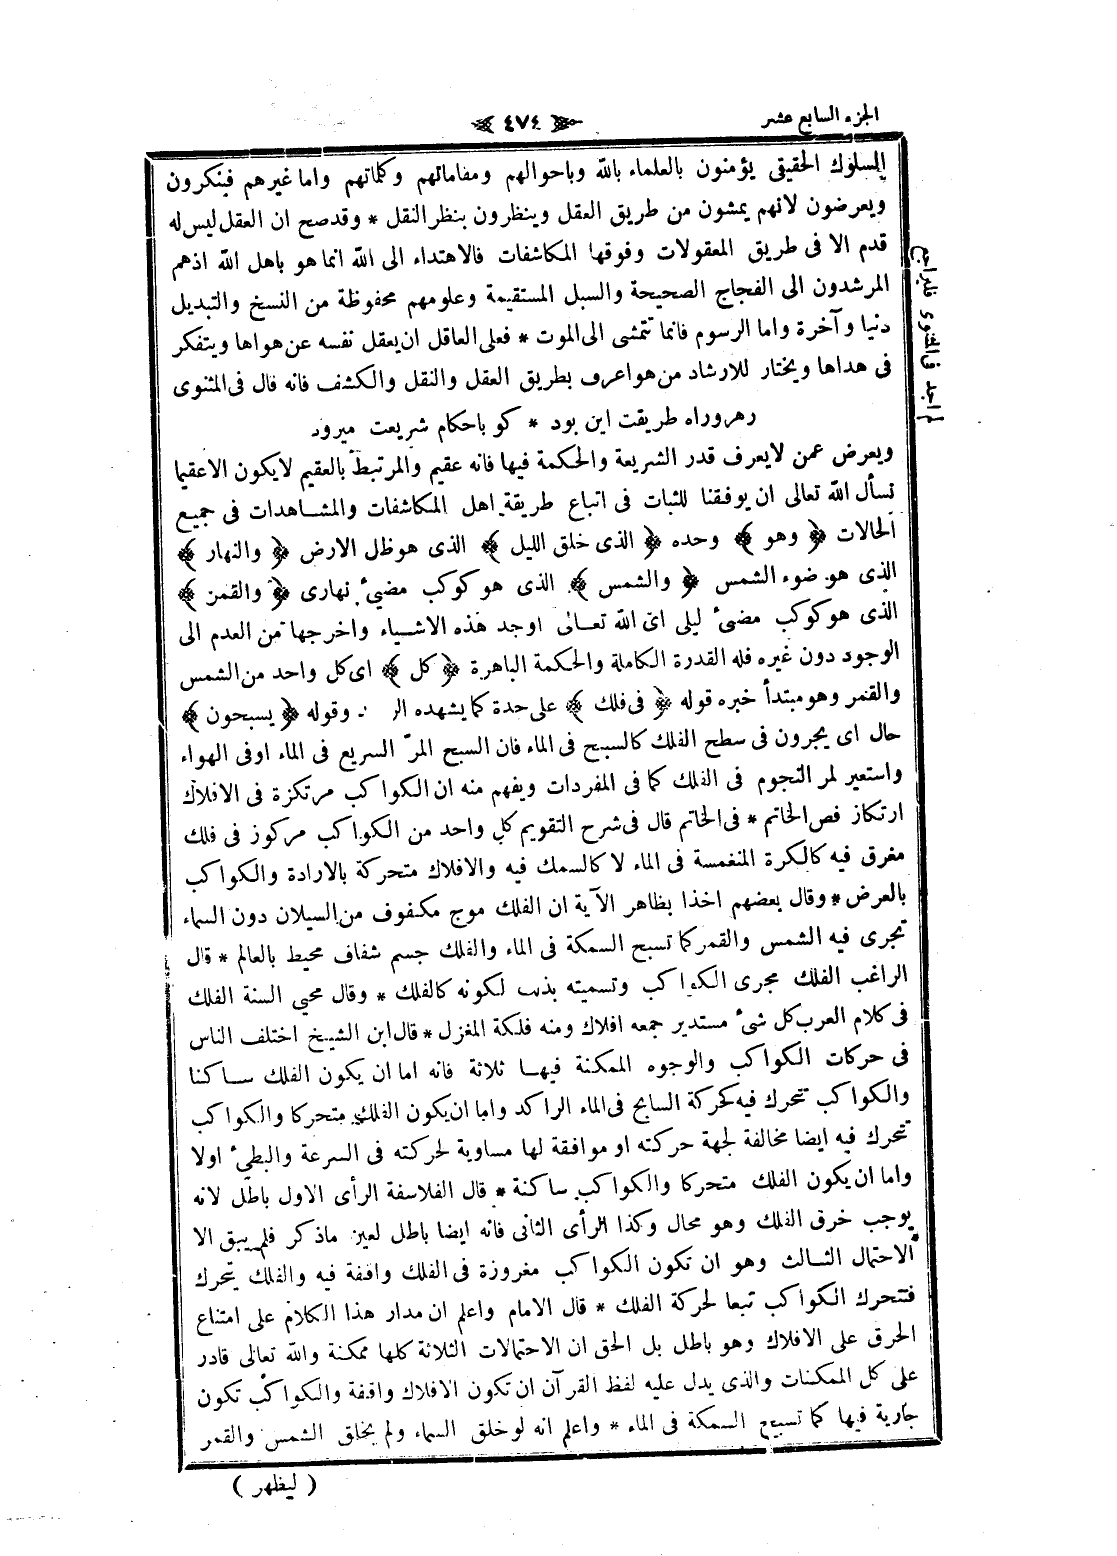 الجزء السابع عشر
٤٧٤
السلوك الحقيقى يؤمنون بالعلماء بالله وباحوالهم ومقاماتهم وكلماتهم واما غيرهم فينكرون
ويعرضون لانهم يمشون من طريق العقل وينظرون بنظر النقل * وقدصح ان العقل ليس له
قدم الا فى طريق المعقولات وفوقها المكاشفات فالاهتداء الى الله انما هو باهل الله اذهم
المرشدون الى الفجاج الصحيحة والسبل المستقيمة وعلومهم محفوظة من النسخ والتبديل
دنيا وآخرة واما الرسوم فانما تتمشى الى الموت * فعلى العاقل ان يعقل نفسه عن هواها ويتفكر
فى هداها ويختار للارشاد من هو اعرف بطريق العقل والنقل والكشف فانه قال فى المثنوى
رهرو راه طريقت اين بود * كو باحكام شريعت ميرود
ويعرض عمن لايعرف قدر الشريعة والحكمة فيها فانه عقيم والمرتبط بالعقيم لايكون الاعقيما
نسأل الله تعالى ان يوفقنا للثبات فى اتباع طريقة اهل المكاشفات والمشاهدات فى جميع
الحالات ﴿ وهو ﴾ وحده ﴿ الذى خلق الليل ﴾ الذى هو ظل الارض ﴿ والنهار ﴾
الذى هو ضوء الشمس ﴿ والشمس ﴾ الذى هو كوكب مضيئ نهارى ﴿ والقمر ﴾
الذى هو كوكب مضيئ ليلى اى الله تعالى اوجد هذه الاشياء واخرجها من العدم الى
الوجود دون غيره فله القدرة الكاملة والحكمة الباهرة ﴿ كل ﴾ اى كل واحد من الشمس
والقمر وهو مبتدأ خبره قوله ﴿ فى فلك ﴾ على حدة كما يشهده وقوله ﴿ يسبحون ﴾
حال اى يجرون فى سطح الفلك كالسبح فى الماء فان السبح المرّ السريع فى الماء اوفى الهواء
واستعير لمر النجوم فى الفلك كما فى المفردات ويفهم منه ان الكواكب مرتكزة فى الافلاك
ارتكاز فص الخاتم * فى الخاتم قال فى شرح التقويم كل واحد من الكواكب مركوز فى فلك
مغرق فيه كالكرة المنغمسة فى الماء لا كالسمك فيه والافلاك متحركة بالارادة والكواكب
بالعرض * وقال بعضهم اخذا بظاهر الآية ان الفلك موج مكفوف من السيلان دون السماء
تجرى فيه الشمس والقمر كما تسبح السمكة فى الماء والفلك جسم شفاف محيط بالعالم * قال
الراغب الفلك مجرى الكواكب وتسميته بذلك لكونه كالفلك * وقال محيى السنة الفلك
فى كلام العرب كل شئ مستدير جمعه افلاك ومنه فلكة المغزل * قال ابن الشيخ اختلف الناس
فى حركات الكواكب والوجوه الممكنة فيها ثلاثة فانه اما ان يكون الفلك ساكنا
والكواكب تتحرك فيه كحركة السابح فى الماء الراكد واما ان يكون الفلك متحركا والكواكب
تتحرك فيه ايضا مخالفة لجهة حركته او موافقة لها مساوية لحركته فى السرعة والبطئ اولا
واما ان يكون الفلك متحركا والكواكب ساكنة * قال الفلاسفة الرأى الاول باطل لانه
يوجب خرق الفلك وهو محال وكذا الرأى الثانى فانه ايضا باطل لعين ماذكر فلم يبق الا
الاحتمال الثالث وهو ان تكون الكواكب مغروزة فى الفلك واقفة فيه والفلك يتحرك
فتتحرك الكواكب تبعا لحركة الفلك * قال الامام واعلم ان مدار هذا الكلام على امتناع
الخرق على الافلاك وهو باطل بل الحق ان الاحتمالات الثلاثة كلها ممكنة والله تعالى قادر
على كل الممكنات والذى يدل عليه لفظ القرآن ان تكون الافلاك واقفة والكواكب تكون
جارية فيها كما تسبح السمكة فى الماء * واعلم انه لو خلق السماء ولم يخلق الشمس والقمر
( ليظهر )